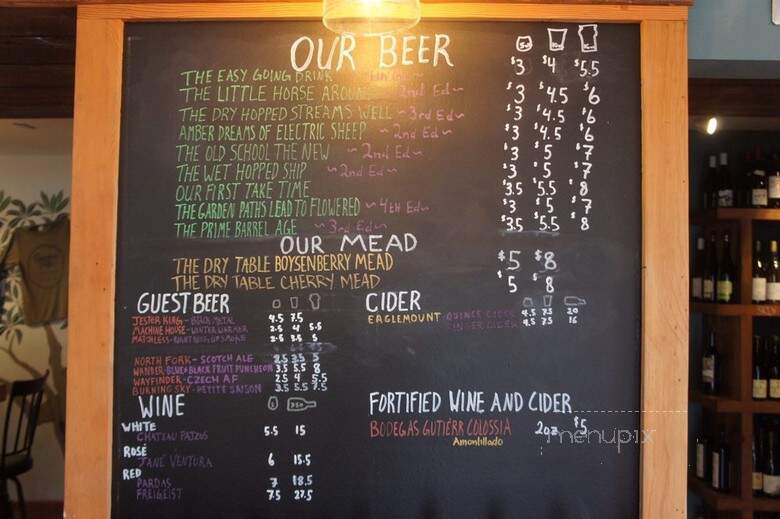 OUR BEER
THE EASY GOING DRINK $3 $4 $5.5
THE LITTLE HORSE AROUND ~2nd Ed~ $3 $4.5 $6
THE DRY HOPPED STREAMS WELL ~3rd Ed~ $3 $4.5 $6
AMBER DREAMS OF ELECTRIC SHEEP ~2nd Ed~ $3 $4.5 $6
THE OLD SCHOOL THE NEW ~2nd Ed~ $3 $5 $7
THE WET HOPPED SHIP ~2nd Ed~ $3 $5 $7
OUR FIRST TAKE TIME $3.5 $5.5 $8
THE GARDEN PATHS LEAD TO FLOWERED ~4th Ed~ $3 $5 $7
THE PRIME BARREL AGE ~3rd Ed~ $3.5 $5.5 $8
OUR MEAD
THE DRY TABLE BOYSENBERRY MEAD $5 $8
THE DRY TABLE CHERRY MEAD $5 $8
GUEST BEER
JESTER KING - BLACK METAL 4.5 7.5
MACHINE HOUSE - WINTER WARMER 2.5 4 5.5
MATCHLESS - OF SMOKE 2.5 3.5 5
NORTH FORK - SCOTCH ALE 2.5 3.5 5
WANDER - BLUE & BLACK FRUIT PUNCHEON 3.5 5.5 8
WAYFINDER - CZECH AF 2.5 4 5.5
BURNING SKY - PETITE SAISON 3.5 5.5 7.5
CIDER
EAGLEMOUNT QUINCE CIDER 4.5 7.5 20
GINGER CIDER 4.5 7.5 16
WINE
WHITE
CHATEAU PATZUS 5.5 15
ROSÉ
JANÉ VENTURA 6 15.5
RED
PARDAS 7 18.5
FREIGEIST 7.5 27.5
FORTIFIED WINE AND CIDER
BODEGAS GUTIÈRR COLOSSIA 2oz $5
Amontillado
menupix